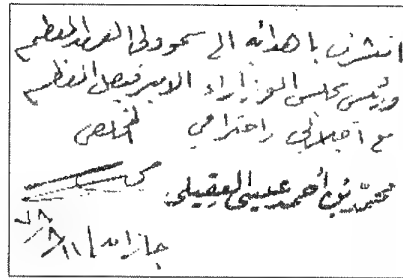 اتشرف باهدائه الى سمو ولى العهد المعظم
ورئيس مجلس الوزراء الامير فيصل المعظم
مع اجلالي واحترامي المخلص
محمد بن أحمد عيسى العقيلي
جازان